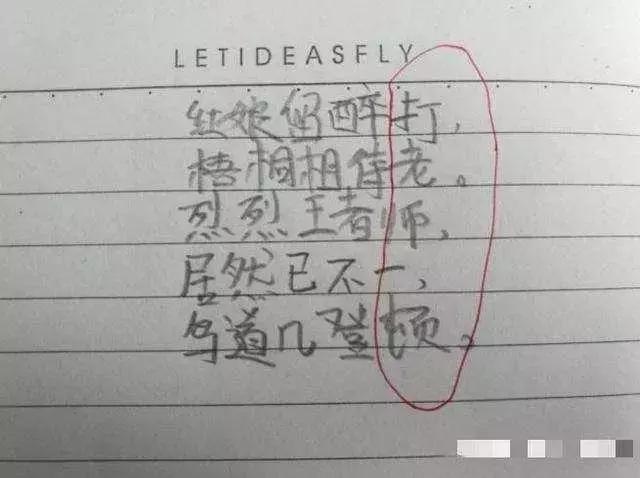 LETIDEASFLY
红娘邀醉打,
梧相相侍老。
烈烈王者师,
居然已不一,
鸟道几登顿。